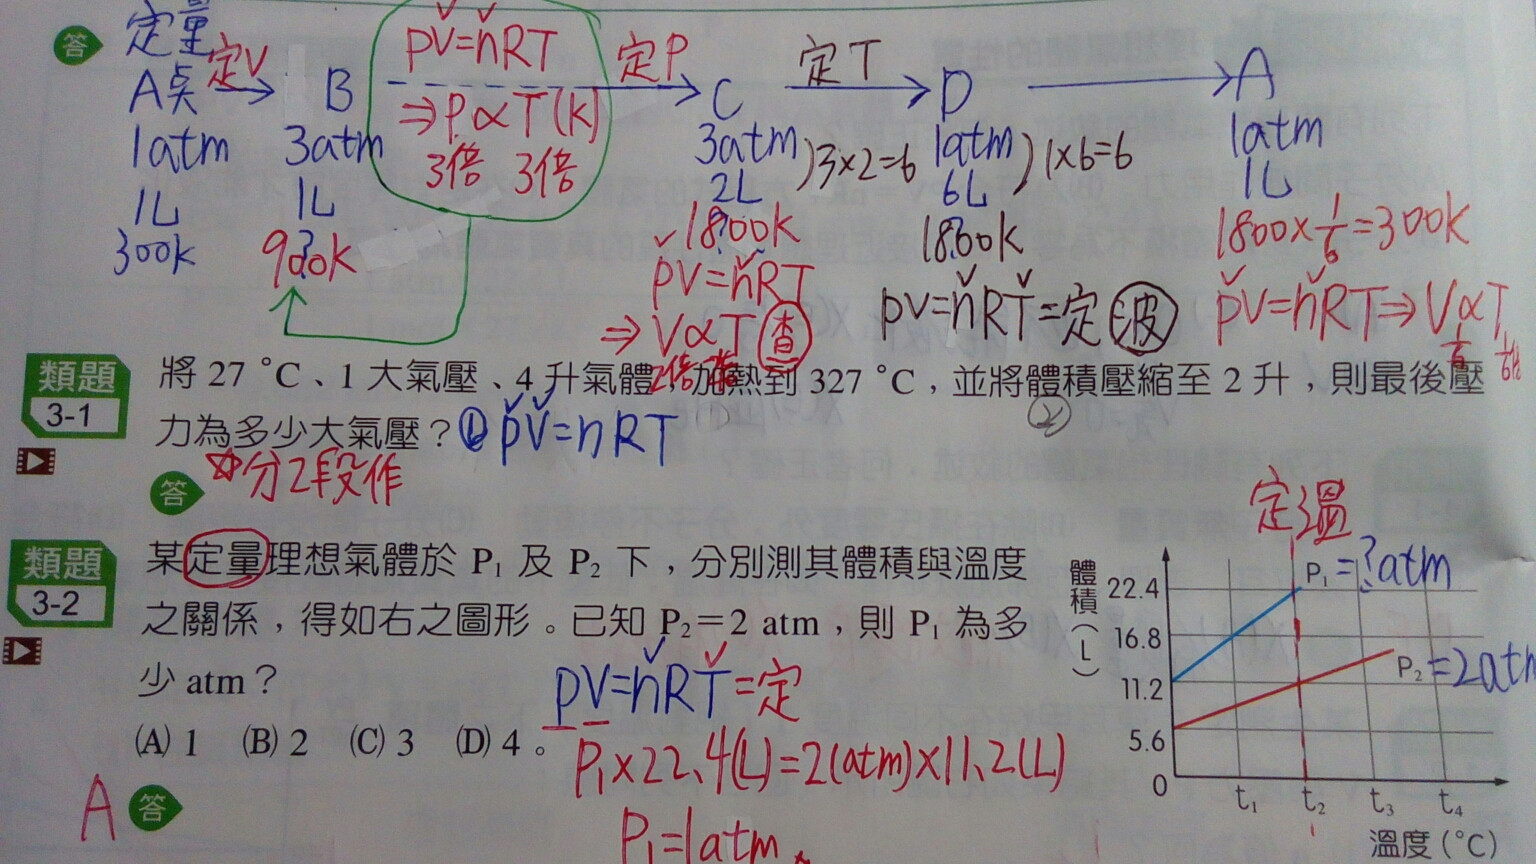 答 定量
定V PV=nRT 定P 定T
A点 B C D A
⇒P∝T(K)
3倍 3倍
1atm 3atm 3atm )3×2=6 1atm )1×6=6 1atm
1L 1L 2L 6L 1L
300k 900k 1800k 1800k 1800×1/6=300k
PV=nRT
⇒V∝T 查 PV=nRT=定 波 PV=nRT⇒V∝T
2倍 1/6 1/6
類題
3-1
將 27 °C、1 大氣壓、4 升氣體,加熱到 327 °C,並將體積壓縮至 2 升,則最後壓
力為多少大氣壓? PV=nRT
分2段作
答
類題
3-2
某定量理想氣體於 P₁ 及 P₂ 下,分別測其體積與溫度
之關係,得如右之圖形。已知 P₂=2 atm,則 P₁ 為多
少 atm?
PV=nRT=定
(A) 1 (B) 2 (C) 3 (D) 4。
P₁×22.4(L)=2(atm)×11.2(L)
P₁=1atm
A 答
定溫
體積(L)
22.4
16.8
11.2
5.6
0
P₁=?atm
P₂=2atm
t₁ t₂ t₃ t₄
溫度(°C)